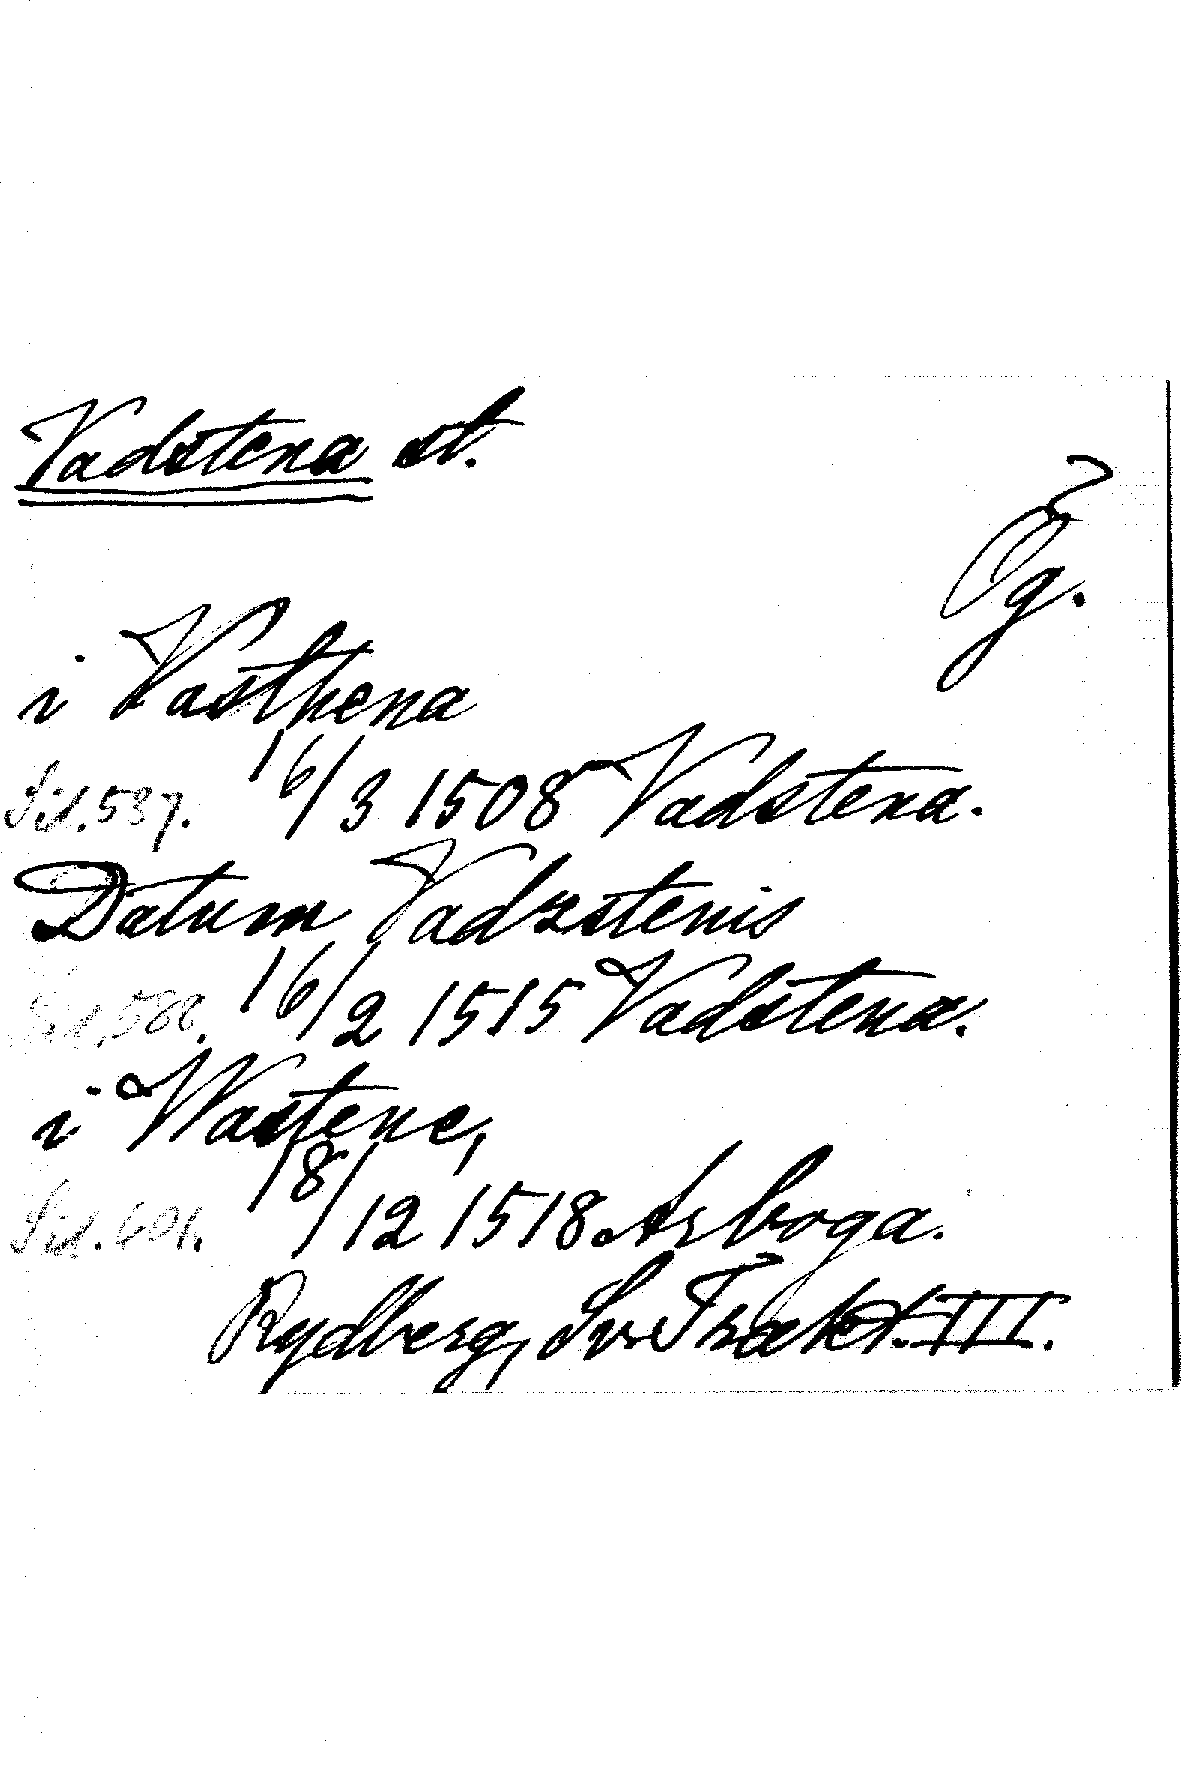 Vadstena st.
Ög.
i Vasthena
Sid. 537. 16/3 1508 Vadstena.
Datum Vadzstenis
16/2 1515 Vadstena.
i Wastene,
Sid. 601. 18/12 1518 Arboga.
Rydberg, Sv. Trakt. III.